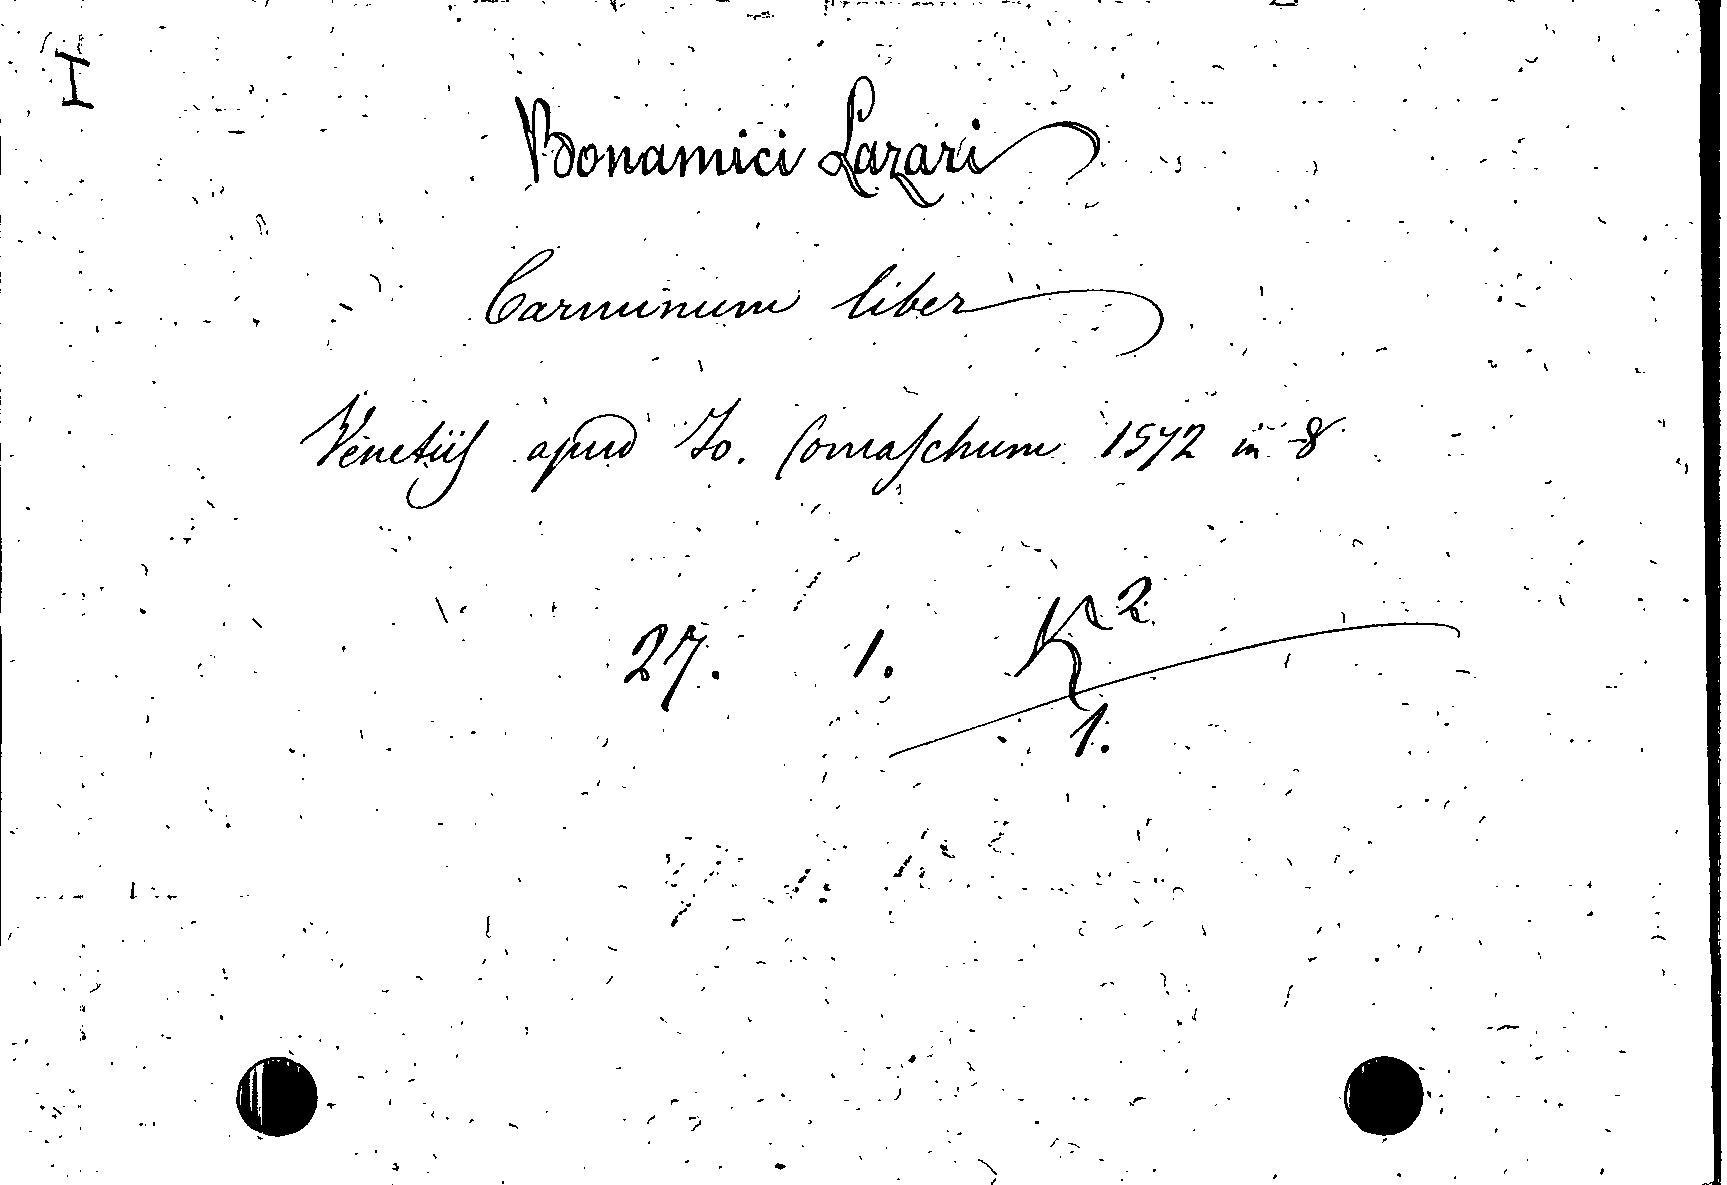 I
Bonamici Lazari
Carminum liber
Venetiis apud Jo. Comaschum 1572 in 8
27. 1. K²
1.